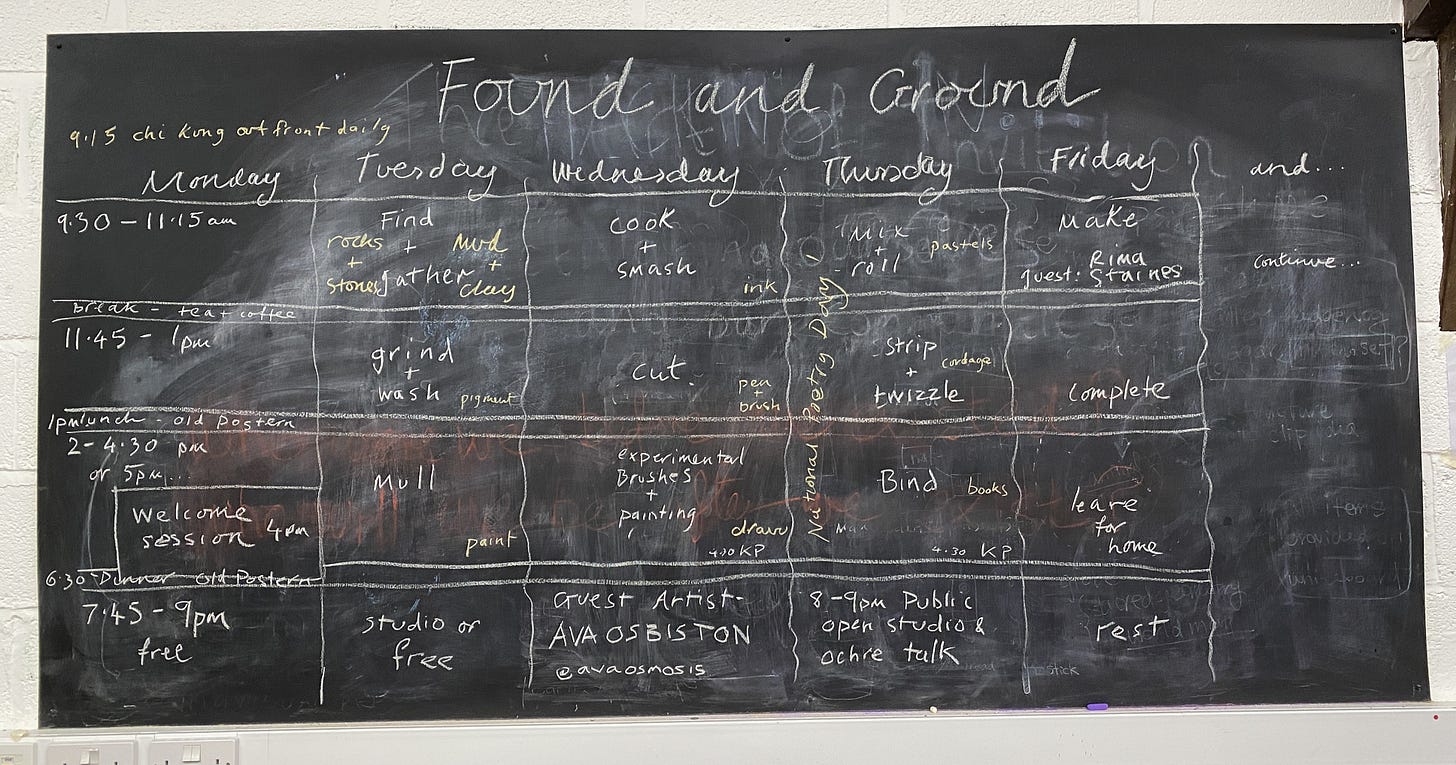 Found and Ground
9.15 chi kung out front daily
Monday Tuesday Wednesday Thursday Friday and...
9.30 - 11.15 am
Find
rocks + mud
+ +
stones gather clay
cook
+
smash
ink
Mix
+ pastels
roll
Make
guest. Rima
Staines
continue...
break - tea + coffee
11.45 - 1pm
grind
+
wash pigment
cut
pen
+
brush
National Poetry Day!
strip
+ cordage
twizzle
complete
1pm lunch - old Postern
2 - 4.30 pm
or 5pm...
Welcome
session 4pm
Mull
paint
experimental
Brushes
+
painting
draw
4.30 KP
Bind books
4.30 KP
leave
for
home
6.30 - Dinner old Postern
7.45 - 9pm
free
studio or
free
Guest Artist -
AVA OSBISTON
@avaosmosis
8-9pm Public
open studio &
ochre talk
rest